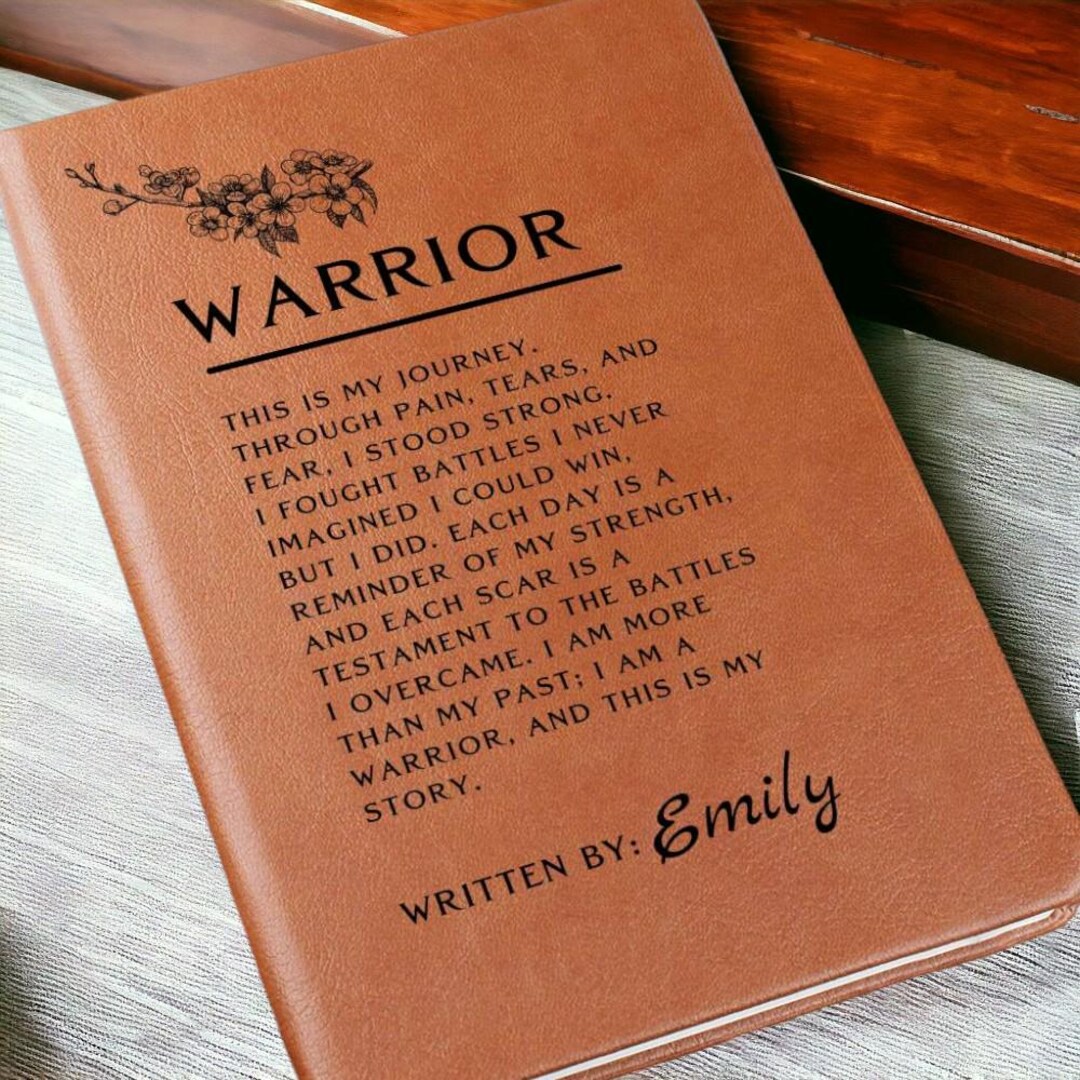 WARRIOR
THIS IS MY JOURNEY.
THROUGH PAIN, TEARS, AND
FEAR, I STOOD STRONG.
I FOUGHT BATTLES I NEVER
IMAGINED I COULD WIN,
BUT I DID. EACH DAY IS A
REMINDER OF MY STRENGTH,
AND EACH SCAR IS A
TESTAMENT TO THE BATTLES
I OVERCAME. I AM MORE
THAN MY PAST; I AM A
WARRIOR, AND THIS IS MY
STORY.
WRITTEN BY: Emily